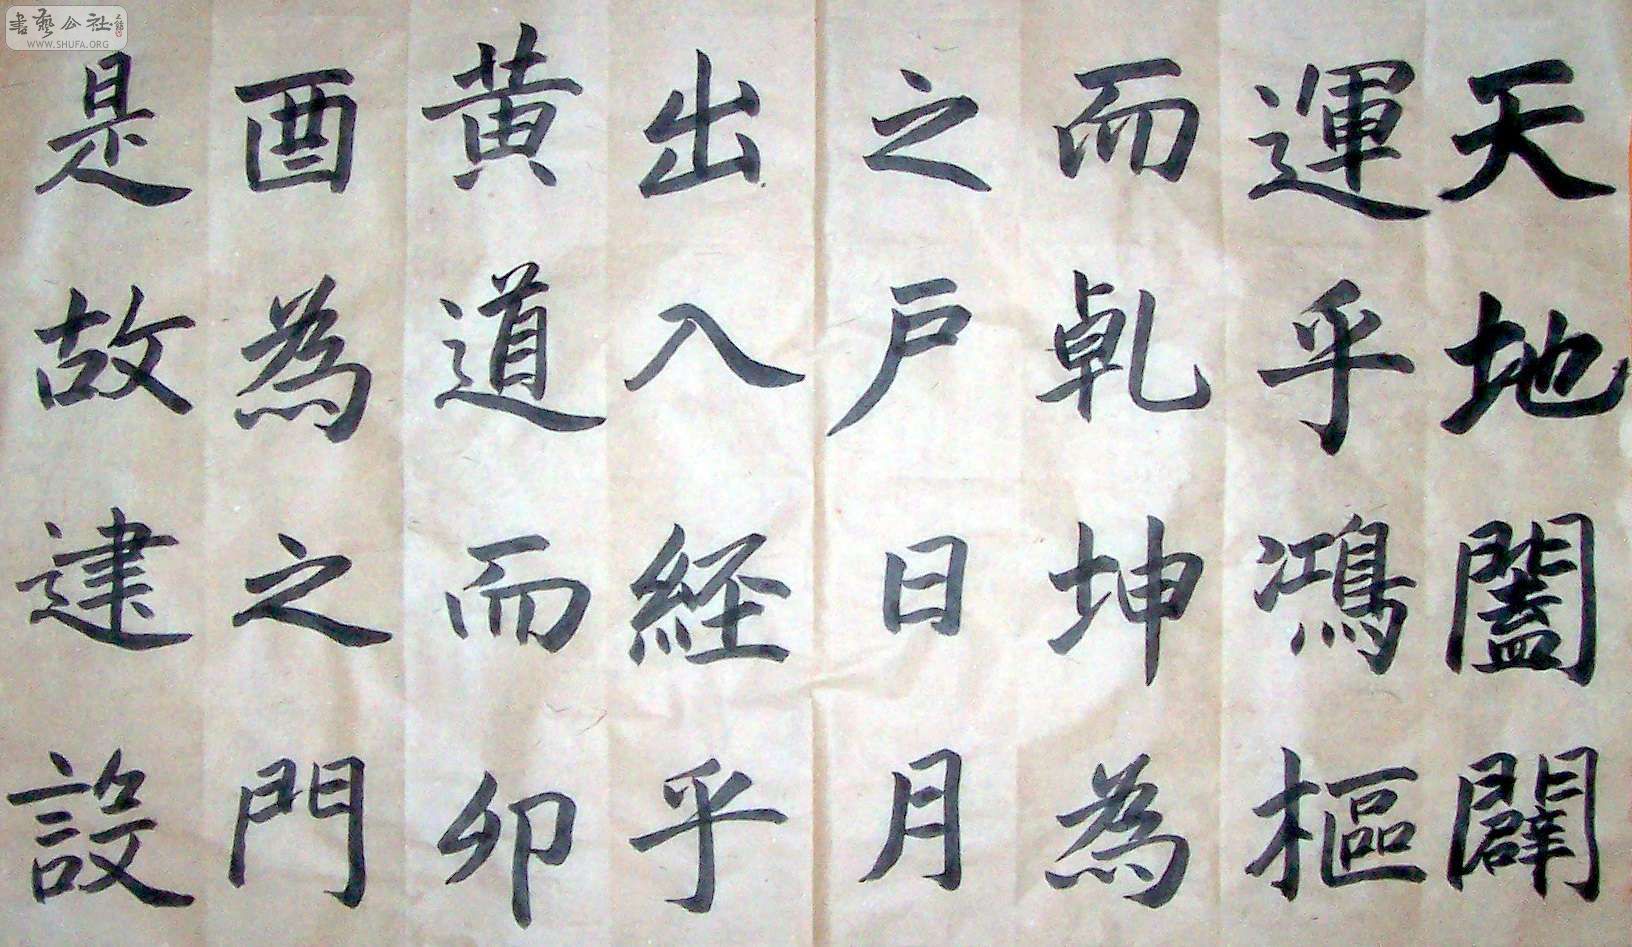 天地闔闢
運乎鴻樞
而乹坤為
之戶日月
出入経乎
黄道而卯
酉為之門
是故建設
書藝公社
WWW.SHUFA.ORG